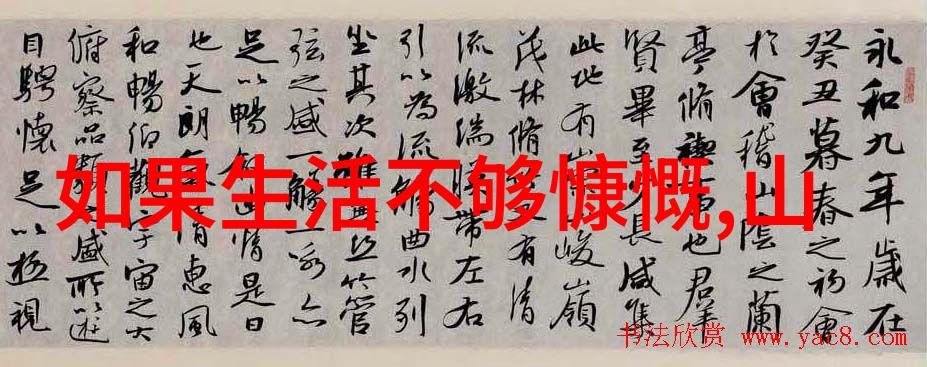 永和九年歲在
癸丑暮春之初會
於會稽山陰之蘭
亭脩禊事也羣
賢畢至少長咸集
此地有崇山峻嶺
茂林脩竹又有清
流激湍映帶左右
引以為流觴曲水列
坐其次雖無絲竹管
弦之盛一觴一詠亦
足以暢敘幽情是日
也天朗氣清惠風
和暢仰觀宇宙之大
俯察品類之盛所以遊
目騁懷足以極視
如果生活不够慷慨,山
书法欣赏 www.yac8.com